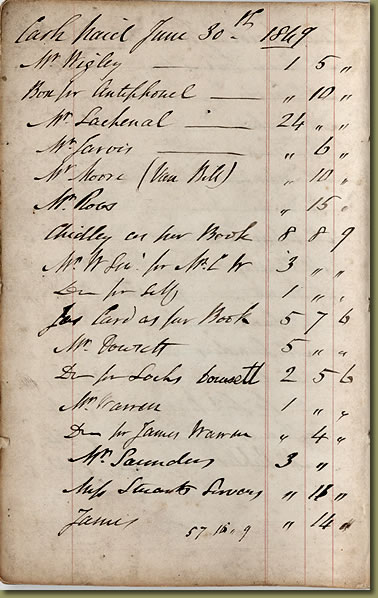 Cash Paid June 30th 1849
Mr Wigley — 1 5 "
Box for Antiphonel — " 10 "
Mr Lachenal — 24 " "
Mr Jarvis — " 6 "
Mr Moore (Van Bill) " 10 "
Mr Rock " 15 "
Chidley as per Book 8 8 9
Mr W for Mr C W 3 " "
Do for self 1 " "
Jas Card as per Book 5 7 6
Mr Dowsett 5 " "
Do for Locks Dowsett 2 5 6
Mr Warren 1 " "
Do for James Warren " 4 "
Mr Saunders 3 "
Miss Stuarts Servens " "
James 57 16 " 9 " 14 "